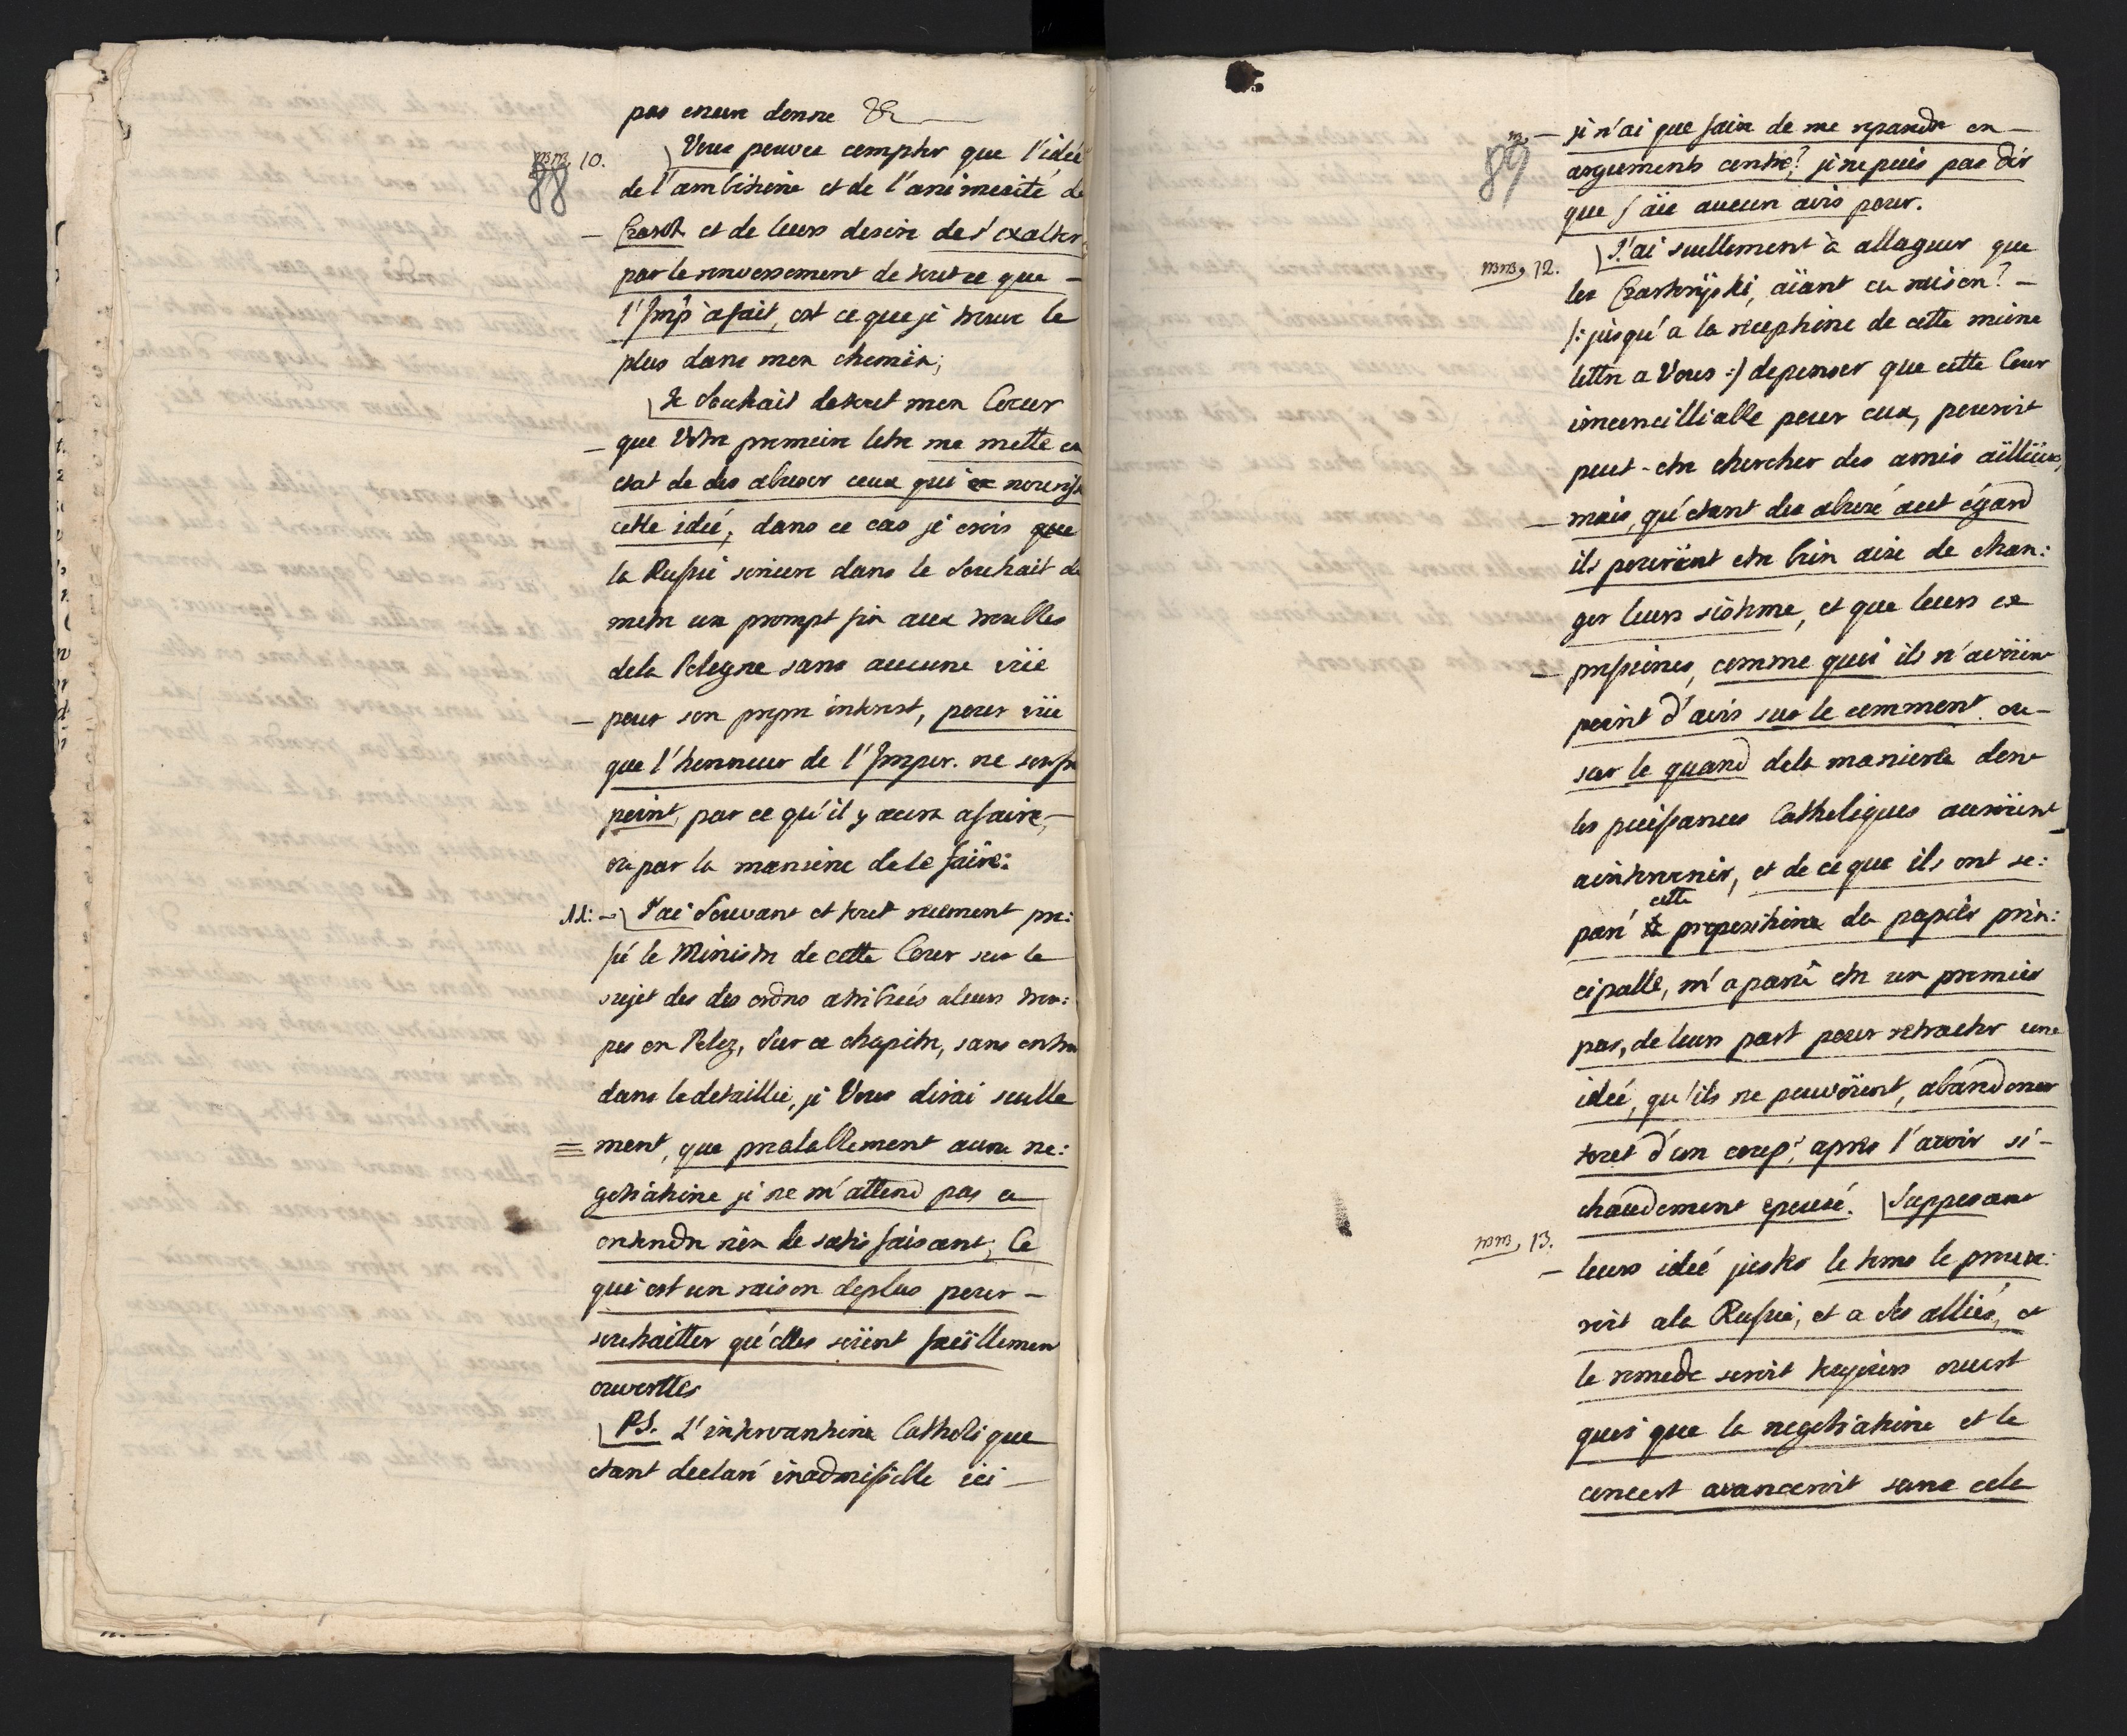 pas encun donné &c
mm, 10. Vous pouvez compter que l'idée
88
de l'ambitione et de l'animosité de
– Czart. et de leurs desire de s'exalter
par le renversement de tout ce que –
l'Imp: à fait, est ce que je trouve le
plus dans mon chemin;
Je Souhait de tout mon Coeur
– que Votre premeire letre me mette en
etat de des abuser ceux qui nourissent
cette idée, dans ce cas je crois que
la Russie sincere dans le Souhait de
metre un prompt fin aux troubles
dela Pologne sans aucune vüe
– pour son propre interest, pour vüe
que l'honneur de l'Imper. ne soufre
point, par ce qu'il y aura afaire, –
ou par la maniere dele faire:
11: – J'ai Souvant et tout recement pre:
ssé le Ministre de cette Cour sur le
sujet des des ordres attribués aleurs trou:
pes en Polog, Sur ce chapitre, sans entrer
dans le detaillie, je Vous dirai seulle
ment, que prealabllement aune ne:
gotiatione je ne m'attend pas a
entendre rien de satisfaisant; Ce
qui est un raison deplus pour –
souhaitter qu'elles soïent
ouvertes
PS. L'intervantione Catholique
etant declaré inadmissible ici –
89
– je n'ai que faire de me repandre en –
arguments contre? je ne puis pas dir
que j'aïe aucun avis pour.
mm, 12. J'ai seullement à allaguer que
les Czartoryski, aïant eu raison? –
/: jusqu'a la receptione de cette meine
lettre a Vous :/ depenser que cette Cour
inconcilliable pour eux, pouroit
peut-etre chercher des amis aïllieurs,
– mais, qu'etant des abusé acet égard
ils pouroient etre bien aise de chan:
ger leurs sistheme, et que leurs ex
– pressiones, comme quoi ils n'avoient
point d'avis sur le comment ou –
sur le quand dela maniere dont
les puissances Catholiques auroïent –
aintervenir, et de ce que ils ont se:
paré cette propositione du papier prin:
cipalle, m'a paru etre un premier
pas, de leurs part pour retracter une
idée, qu'ils ne pouvoïent, abandoner
tout d'un coup; apres l'avoir si –
chaudement epousé. Supposant
mm, 13.
– leurs idée justes le tems le prouve:
roit ala Russie, et a ses alliés, et
le remede seroit toujours ouvert
quoi que la negotiatione et le
concert avanceroit sans cela